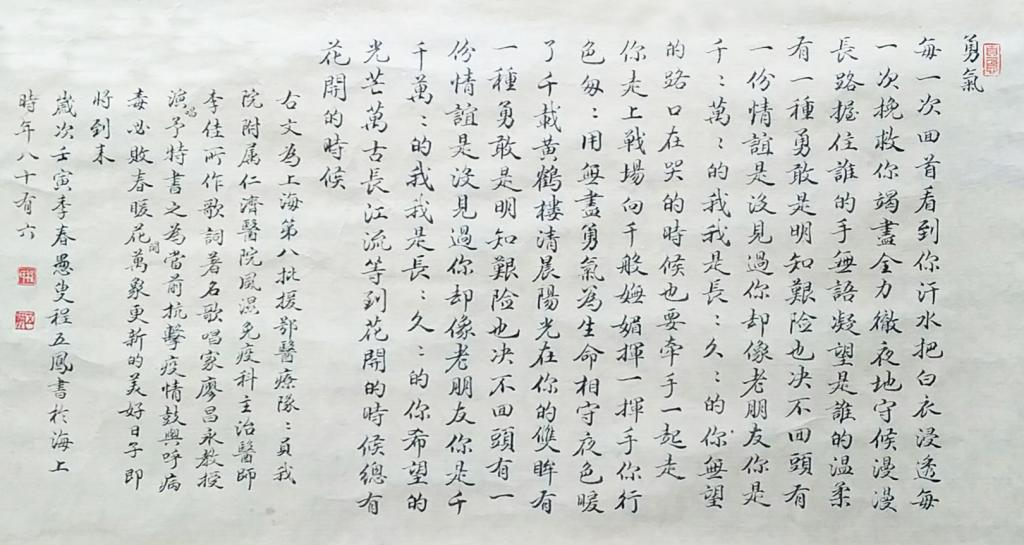 勇氣
每一次回首看到你汗水把白衣浸透每
一次挽救你竭盡全力徹夜地守候漫漫
長路握住誰的手無語凝望是誰的温柔
有一種勇敢是明知艱险也决不回頭有
一份情誼是没見過你却像老朋友你是
千：萬：的我我是長：久：的你無望
的路口在哭的時候也要牵手一起走
你走上戰場向千般嫵媚揮一揮手你行
色匆：用無盡勇氣為生命相守夜色暖
了千載黄鶴樓清晨陽光在你的雙眸有
一種勇敢是明知艱险也决不回頭有一
份情誼是没見過你却像老朋友你是千
千萬：的我我是長：久：的你希望的
光芒萬古長江流等到花開的時候總有
花開的時候
右文為上海第八批援鄂醫療隊：員我
院附属仁濟醫院風濕免疫科主治醫師
李佳所作歌詞著名歌唱家廖昌永教授
演唱予特書之為當前抗擊疫情鼓與呼病
毒必敗春暖花開萬象更新的美好日子即
將到来
歲次壬寅季春愚叟程五鳳書於海上
時年八十有六